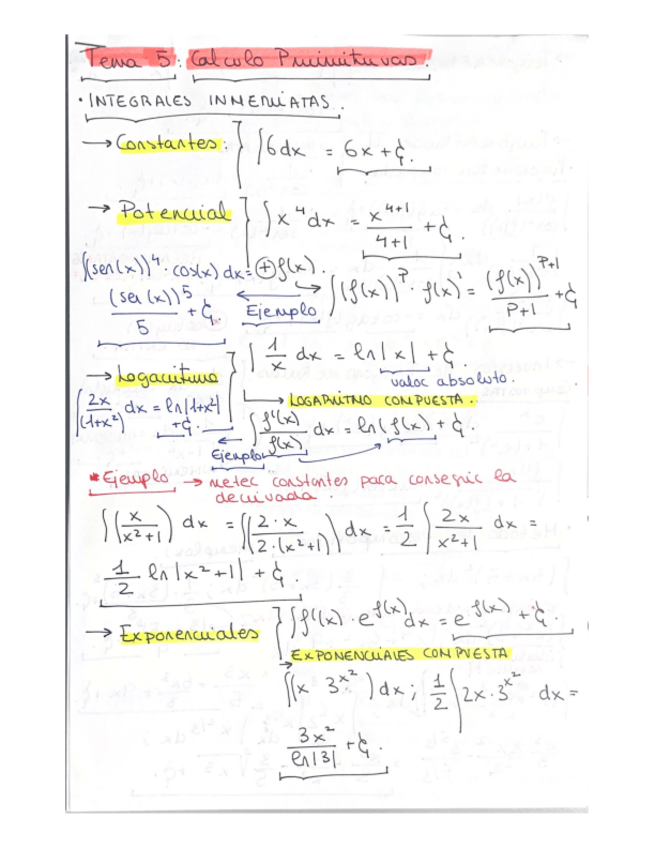 Tema 5: Calculo Primitivas.
· INTEGRALES INMEDIATAS.
→ Constantes: ∫6dx = 6x + C.
→ Potencial ∫x⁴dx = x⁴⁺¹/4+1 + C.
∫(sen(x))⁴ · cos(x) dx = ⊕ f(x).
(sen(x))⁵/5 + C. ← Ejemplo → ∫(f(x))ᵖ · f(x)' = (f(x))ᵖ⁺¹/P+1 + C
→ Logaritmo ∫1/x dx = ln|x| + C.
valor absoluto.
→ LOGARITMO COMPUESTA.
∫2x/(1+x²) dx = ln|1+x²| + C. ← Ejemplo ∫f'(x)/f(x) dx = ln(f(x) + C.
* Ejemplo → meter constantes para conseguir la
derivada.
∫(x/x²+1) dx = ∫(2·x/2·(x²+1)) dx = 1/2 ∫2x/x²+1 dx =
1/2 ln|x²+1| + C.
→ Exponenciales ∫f'(x) · e^f(x) dx = e^f(x) + C.
→ EXPONENCIALES COMPUESTA
∫(x 3^x²) dx; ∫1/2 ∫2x·3^x² dx =
3x²/ln|3| + C.